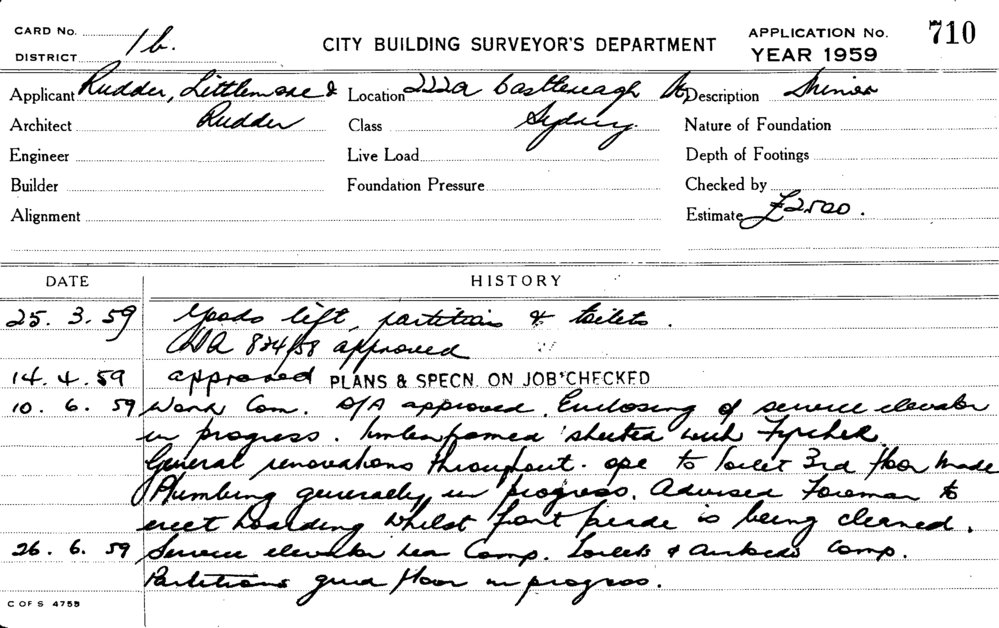 CARD No. 1b.
DISTRICT
CITY BUILDING SURVEYOR'S DEPARTMENT
APPLICATION No. 710
YEAR 1959
Applicant Rudder, Littlemore & Location 222a Castlereagh St Description Minor
Architect Rudder Class Sydney. Nature of Foundation
Engineer Live Load Depth of Footings
Builder Foundation Pressure Checked by
Alignment Estimate £2500.
DATE HISTORY
25. 3. 59 Goods lift, partitions & toilets.
834/58 approved
14. 4. 59 approved PLANS & SPECN. ON JOB CHECKED
10. 6. 59 Work Com. D/A approved. Enclosing of service elevator
in progress. timber framed sheeted with
General renovations throughout. ope to toilet 3rd floor made
Plumbing generally in progress. Advised Foreman to
erect hoarding whilst front facade is being cleaned.
26. 6. 59 Service elevator Comp. Toilets & comp.
Partitions grnd floor in progress.
C OF S 4759